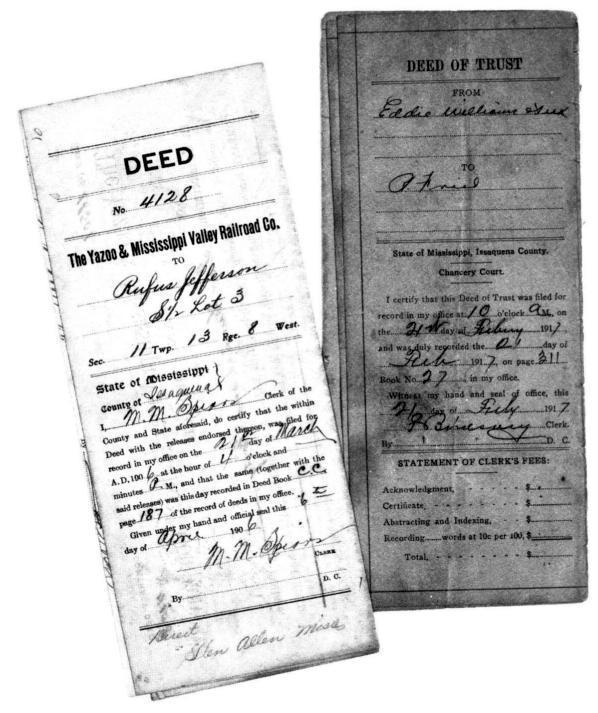 DEED
No. 4128
The Yazoo & Mississippi Valley Railroad Co.
TO
Rufus Jefferson
S/2 Lot 3
Sec. 11 Twp. 13 Rge. 8 West.
State of Mississippi
County of Issaquena
I, M. M. Spiars Clerk of the
County and State aforesaid, do certify that the within
Deed with the releases endorsed thereon, was filed for
record in my office on the 21st day of March
A. D. 1906 at the hour of 4 o'clock and
minutes P. M., and that the same (together with the
said releases) was this day recorded in Deed Book C.C
page 187 of the record of deeds in my office.
Given under my hand and official seal this 6
day of April 1906
M. M. Spiars
CLERK
By D. C.
Glen Allen Miss
DEED OF TRUST
FROM
Eddie Williams
TO
State of Mississippi, Issaquena County.
Chancery Court.
I certify that this Deed of Trust was filed for
record in my office at 10 o'clock A M., on
the day of 1917
and was duly recorded the 21 day of
Feb 1917 on page 311
Book No. 27 in my office.
Witness my hand and seal of office, this
21 day of 1917
Clerk.
By D. C.
STATEMENT OF CLERK'S FEES:
Acknowledgment, - - - $
Certificate, - - - - $
Abstracting and Indexing, - - $
Recording words at 10c per 100, $
Total, - - - - $